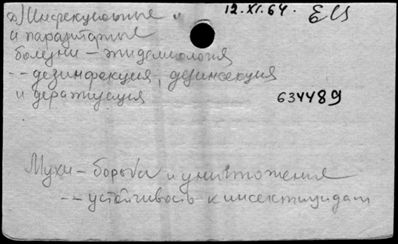 а) Инфекционные и 12.XI.64. ЕИ
и паразитарные
болезни — эпидемиология
-- дезинфекция, дезинсекция
и дератизация
634489
Мухи — борьба и уничтожения
-- устойчивость к инсектицидам